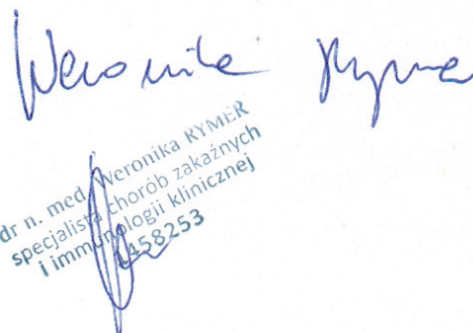 Weronika Rymer
dr n. med. Weronika RYMER
specjalista chorób zakaźnych
i immunologii klinicznej
1458253